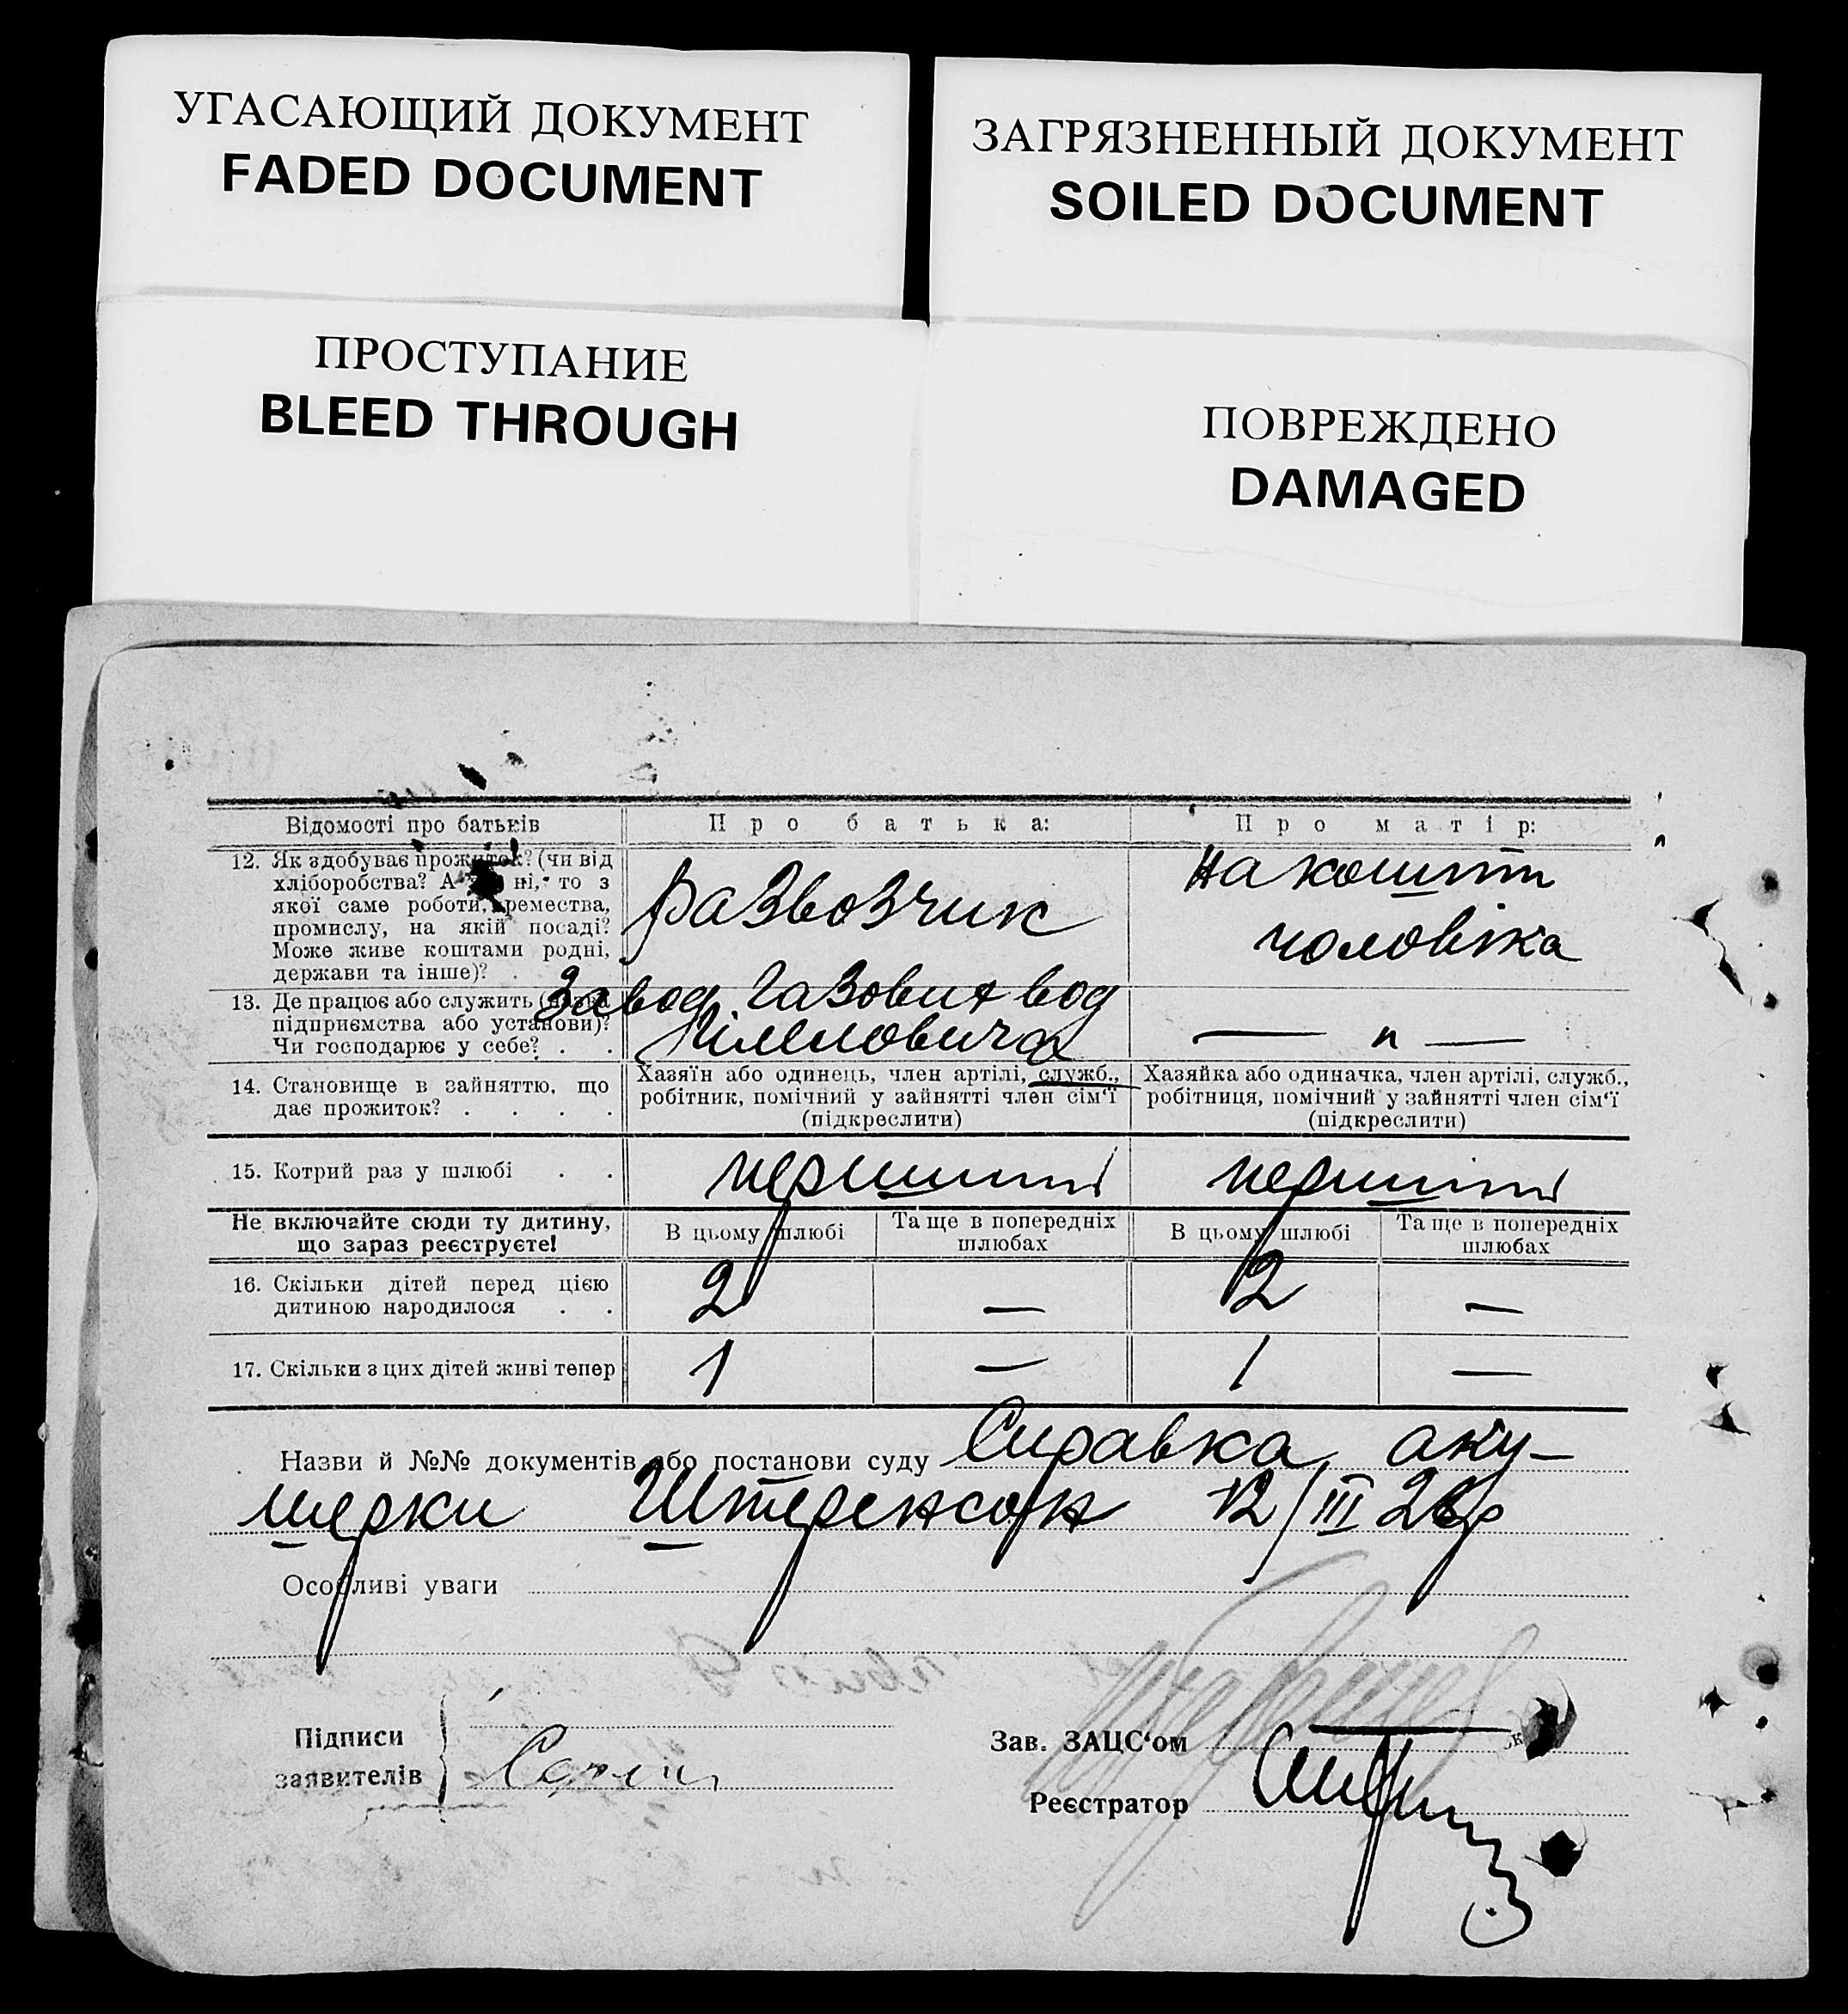 УГАСАЮЩИЙ ДОКУМЕНТ
FADED DOCUMENT
ЗАГРЯЗНЕННЫЙ ДОКУМЕНТ
SOILED DOCUMENT
ПРОСТУПАНИЕ
BLEED THROUGH
ПОВРЕЖДЕНО
DAMAGED
Відомості про батьків
Про батька:
Про матір:
12. Як здобуває прожиток? (чи від
хліборобства? А ні, то з
якої саме роботи, ремества,
промислу, на якій посаді?
Може живе коштами родні,
держави та інше)? .
Развозчик
на кошти
чоловіка
13. Де працює або служить (назва
підприємства або установи)?
Чи господарює у себе? . .
Завод газових вод
— п —
14. Становище в зайняттю, що
дає прожиток? . . . .
Хазяїн або одинець, член артілі, служб.,
робітник, помічний у зайнятті член сім'ї
(підкреслити)
Хазяйка або одиначка, член артілі, служб.,
робітниця, помічний у зайнятті член сім'ї
(підкреслити)
15. Котрий раз у шлюбі . .
перший
перший
Не включайте сюди ту дитину,
що зараз реєструєте!
В цьому шлюбі
Та ще в попередніх
шлюбах
В цьому шлюбі
Та ще в попередніх
шлюбах
16. Скільки дітей перед цією
дитиною народилося . .
2
—
2
—
17. Скільки з цих дітей живі тепер
1
—
1
—
Назви й №№ документів або постанови суду Справка аку-
шерки Штеренсон 12/III 26р
Особливі уваги
Підписи
заявителів
Зав. ЗАЦС'ом
Реєстратор